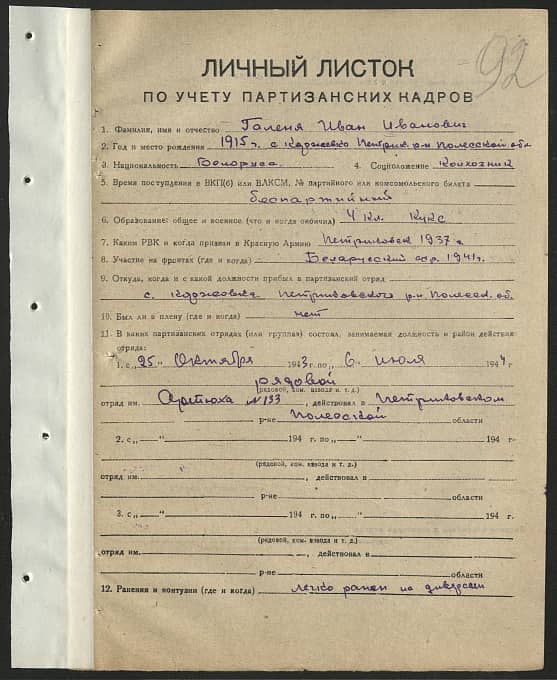 92
ЛИЧНЫЙ ЛИСТОК
ПО УЧЕТУ ПАРТИЗАНСКИХ КАДРОВ
1. Фамилия, имя и отчество Галеня Иван Иванович
2. Год и место рождения 1915 г. с Петрик. р-н Полесской обл
3. Национальность Белорусс. 4. Соцположение Колхозник
5. Время поступления в ВКП(б) или ВЛКСМ, № партийного или комсомольского билета
беспартийный
6. Образование: общее и военное (что и когда окончил) 4 кл.
7. Каким РВК и когда призван в Красную Армию Петриковск 1937 г
8. Участие на фронтах (где и когда) Беларусский 1941 г.
9. Откуда, когда и с какой должности прибыл в партизанский отряд
с. Петриковского р-н Полесск. об.
10. Был ли в плену (где и когда) нет
11. В каких партизанских отрядах (или группах) состоял, занимаемая должность и район действия
отряда:
1. с „25“ Октября 1943 г. по „6“ июля 1944 г
рядовой
(рядовой, ком. взвода и т. д.)
отряд им. № 133, действовал в Петриковском
р-не Полесской области
2. с „ “ 194 г. по „ “ 194 г.
(рядовой, ком. взвода и т. д.)
отряд им. , действовал в
р-не области
3. с „ “ 194 г. по „ “ 194 г.
(рядовой, ком. взвода и т. д.)
отряд им. , действовал в
р-не области
12. Ранения и контузии (где и когда) легко ранен на диверсии